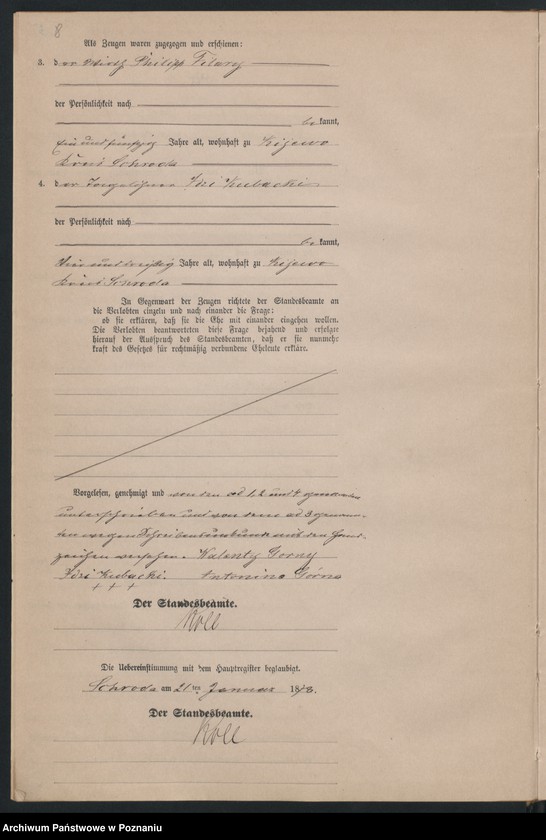 8
Als Zeugen waren zugezogen und erschienen:
3. der Wirth Philipp
der Persönlichkeit nach
be kannt,
Jahre alt, wohnhaft zu Kijewo
Kreis Schroda
4. der Tagelöhner Kubacki
der Persönlichkeit nach
be kannt,
und dreißig Jahre alt, wohnhaft zu Kijewo
Kreis Schroda
In Gegenwart der Zeugen richtete der Standesbeamte an
die Verlobten einzeln und nach einander die Frage:
ob sie erklären, daß sie die Ehe mit einander eingehen wollen.
Die Verlobten beantworteten diese Frage bejahend und erfolgte
hierauf der Ausspruch des Standesbeamten, daß er sie nunmehr
kraft des Gesetzes für rechtmäßig verbundene Eheleute erkläre.
Vorgelesen, genehmigt und von den ad 1, 2 und 4
unterschrieben und von dem ad 3 genann-
ten wegen Schreibensunkunde mit den Hand-
zeichen versehen. Walenty Gorny
Kubacki. Antonina Górna
+ + +
Der Standesbeamte.
Die Uebereinstimmung mit dem Hauptregister beglaubigt.
Schroda am 21ten Januar 18
Der Standesbeamte.
Archiwum Państwowe w Poznaniu